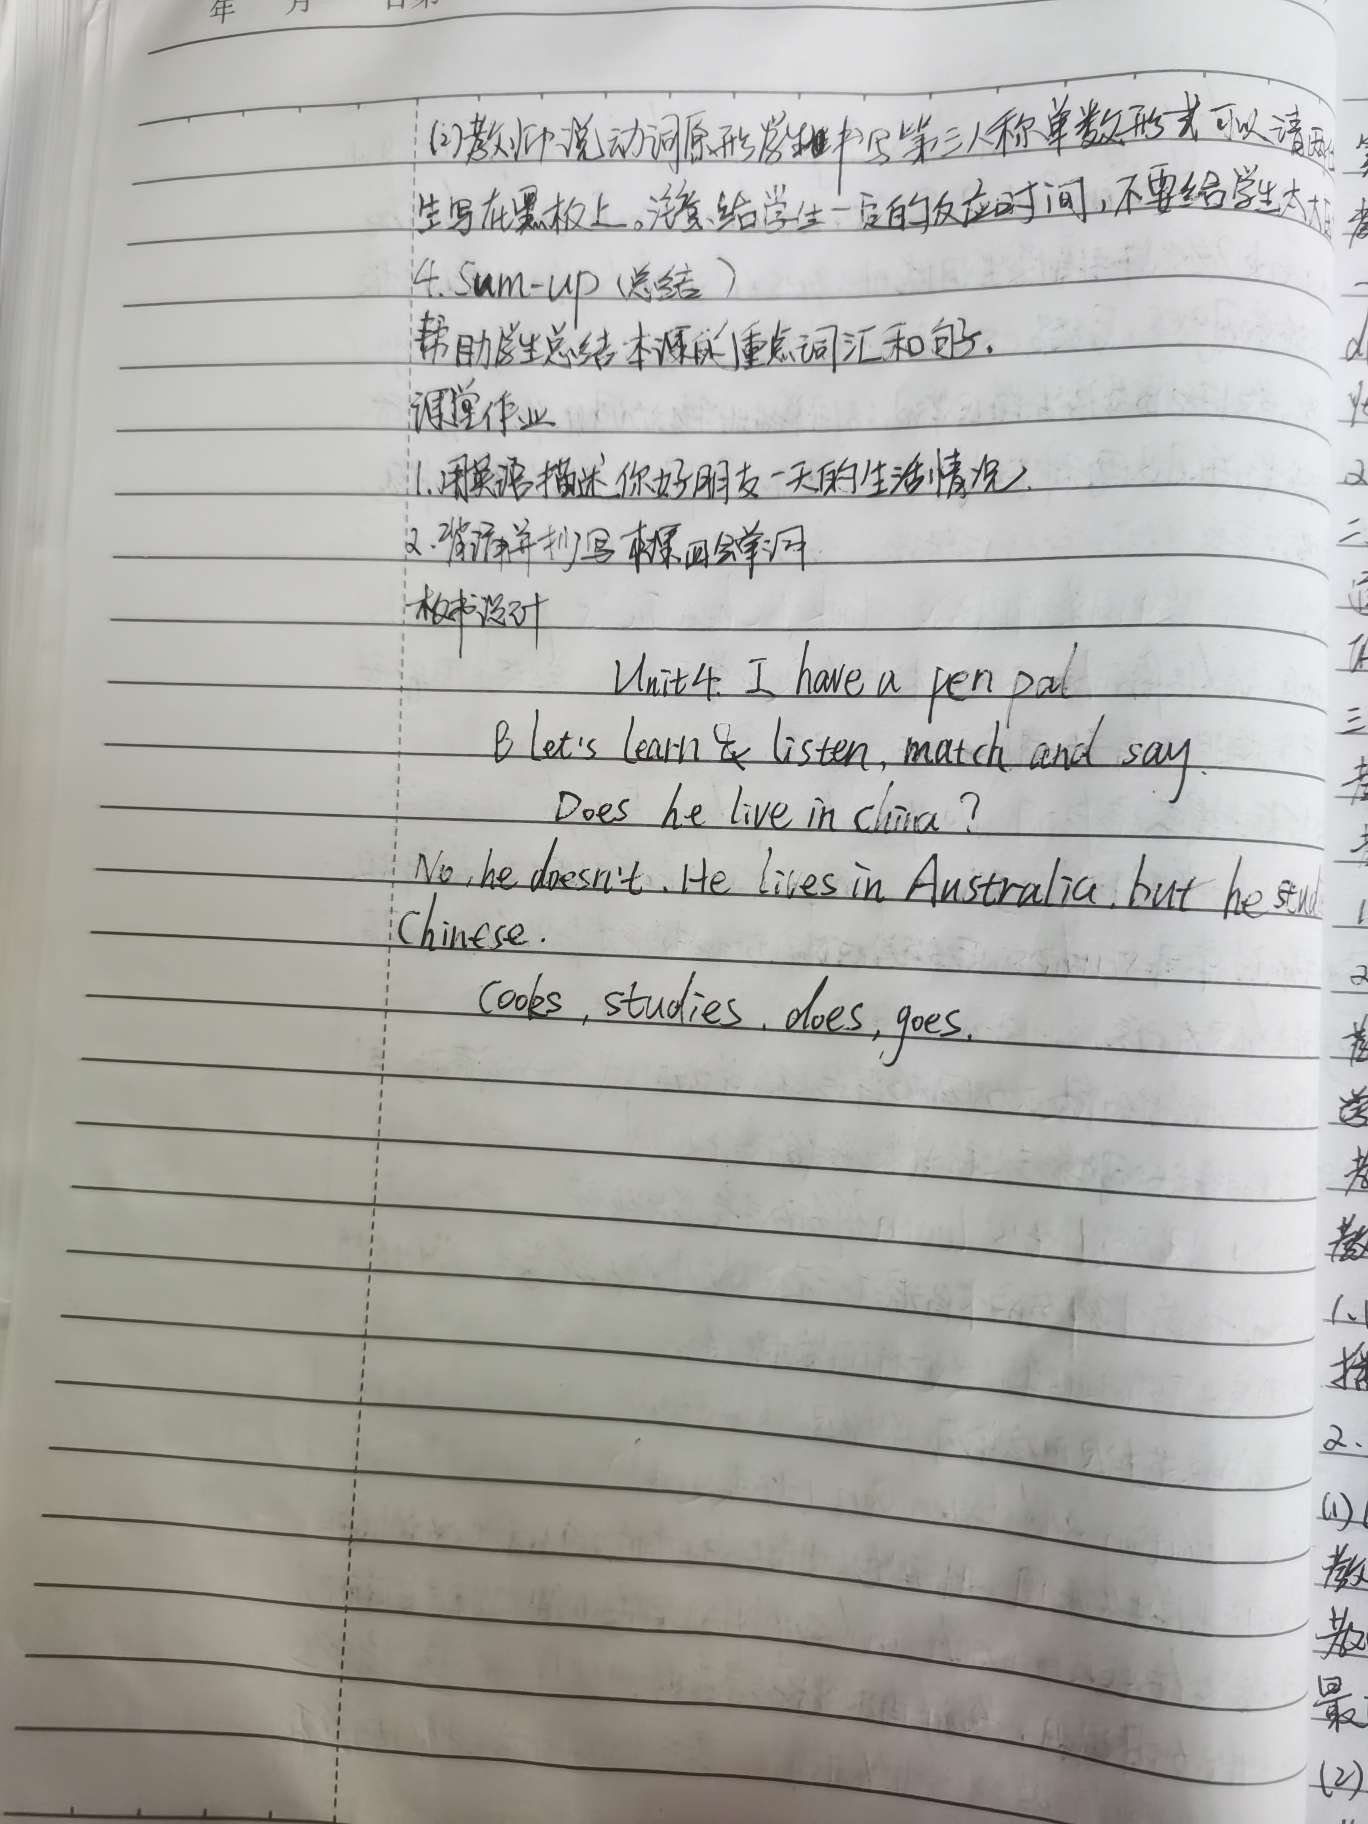 年 月 日第
(2)教师说动词原形学生书写第三人称单数形式可以请两
生写在黑板上。注意给学生一定的反应时间,不要给学生太大
4. Sum-up (总结)
帮助学生总结本课的重点词汇和句子.
课堂作业
1.用英语描述你好朋友一天的生活情况.
2.背诵并抄写本课四会单词
板书设计
Unit4. I have a pen pal
B let's learn & listen, match and say.
Does he live in china?
No, he doesn't. He lives in Australia, but he stud
Chinese.
Cooks, studies, does, goes.